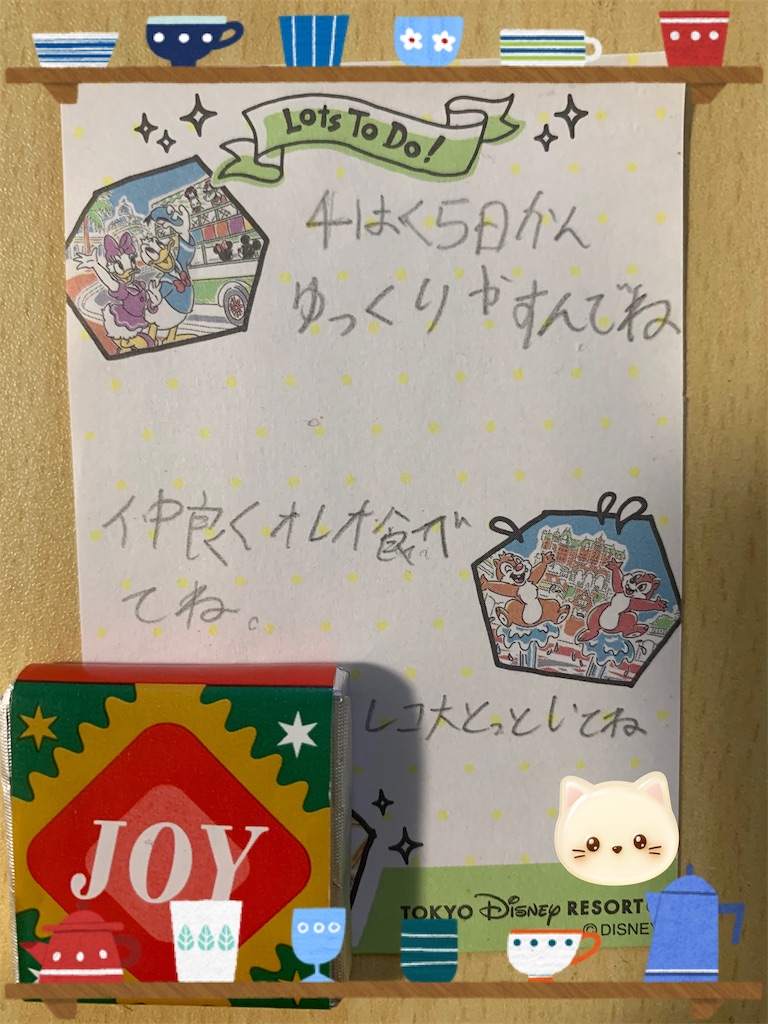 Lots To Do!
4はく5日かん
ゆっくりやすんでね
仲良くオレオ食べ
てね。
レコ大とっといてね
JOY
TOKYO Disney RESORT
©DISNEY